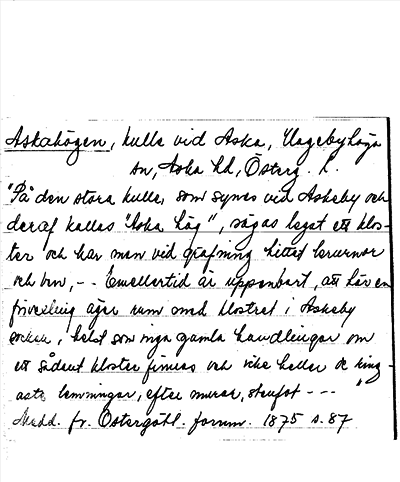 Askahögen, kulle vid Aska, Hagebyhöga
sn, Aska hd, Österg. L.
"På den stora kulle, som synes vid Askeby och
deraf kallas "Aska hög", säges legat ett klos-
ter och har man vid gräfning hittat
och ben, -- Emellertid är uppenbart, att här en
förvexling äger rum med klostret i Askeby
socken, helst som inga gamla handlingar om
ett sådant kloster finnas och icke heller de ring-
aste lemningar, efter murar, stenfot ---"
Medd. fr. Östergötl. fornm. 1875 s. 87